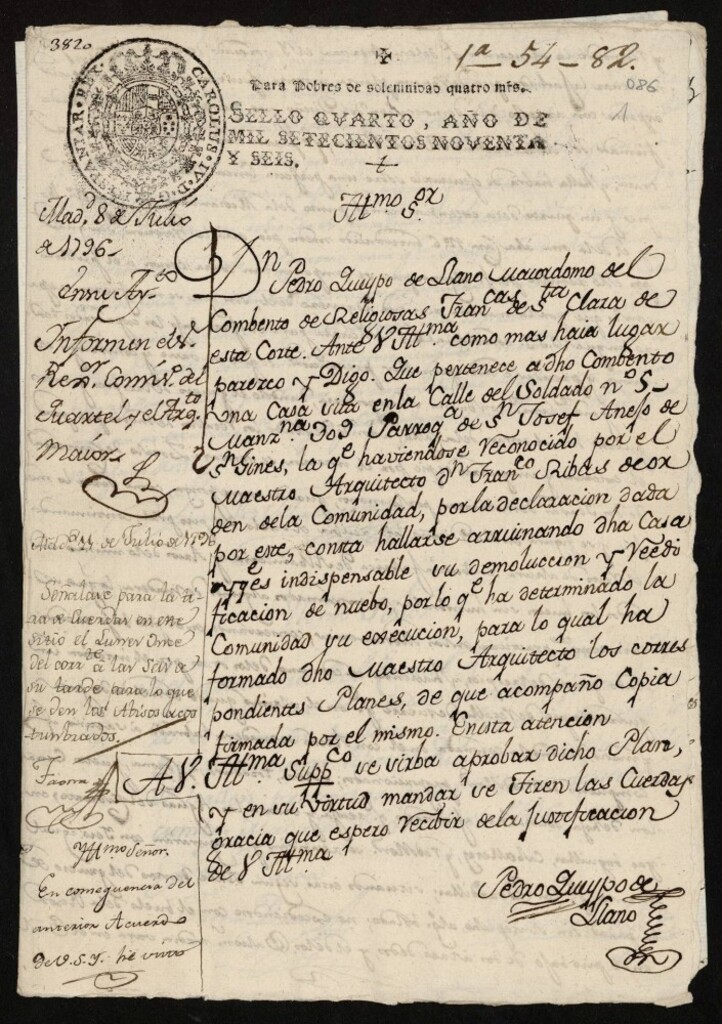 3820
1ª 54-82.
086
1
CAROLUS IV D. G. HISPANIAR. REX.
Para Pobres de solemnidad quatro mrs.
SELLO QVARTO, AÑO DE
MIL SETECIENTOS NOVENTA
Y SEIS.
Yllmo Sor
Dn Pedro Quiypo de Llano Mavordomo del
Combento de Religiosas Francas de Sta Clara de
esta Corte. Ante V Yllma como mas haia lugar
parezco y Digo. Que pertenece a dho Combento
una Casa sita en la Calle del Soldado nº 5
Manzna 309 Parroqa de Sn Josef Anejo de
Sn Gines, la qe haviendose reconocido por el
Maestro Arquitecto Dn Franco Ribas de or
den dela Comunidad, por la declaracion dada
por este, consta hallarse arruinando dha Casa
y qes indispensable su demoluccion y Reedi
ficacion de nuebo, por lo qe ha determinado la
Comunidad su execucion, para lo qual ha
formado dho Maestro Arquitecto los corres
pondientes Planes, de que acompaño Copia
firmada por el mismo. En esta atencion
A V. Yllma Suppco se sirba aprobar dicho Plan,
y en su virtud mandar se Tiren las Cuerdas
gracia que espero recibir de la justificacion
de V Yllma
Pedro Quiypo de
Llano
Madd 8 de Julio
de 1796
En su Ayto
Informen el S.
Rexor Comiso del
Quartel y el Arqto
Maior
Madd 11 de Julio de 1796
Señalase para la ti
ra de Cuerdas en este
Sitio el Lunes Once
del corrte a las Seis de
su tarde para lo que
se den los Abisos acos
tumbrados.
Yllmo Señor.
En consequencia del
anterior Acuerdo
de V.S.Y. he visto